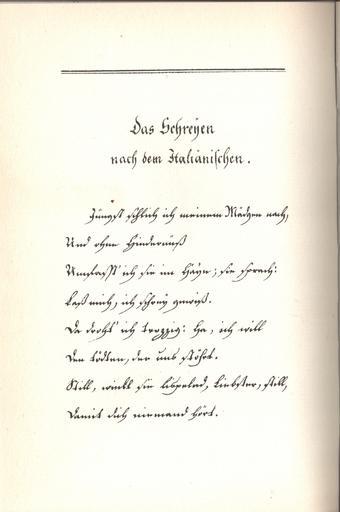 Das Schreyen
nach dem Italiänischen.
Jüngst schlich ich meinem Mädgen nach,
Und ohne Hinderniß
Umfasst' ich sie im Hayn; sie sprach:
Laß mich, ich schrey gewiß.
Da droht' ich trozzig: Ha, ich will
Den tödten, der uns stöhrt.
Still, winkt sie lispelnd, Liebster, still,
Damit dich niemand hört.